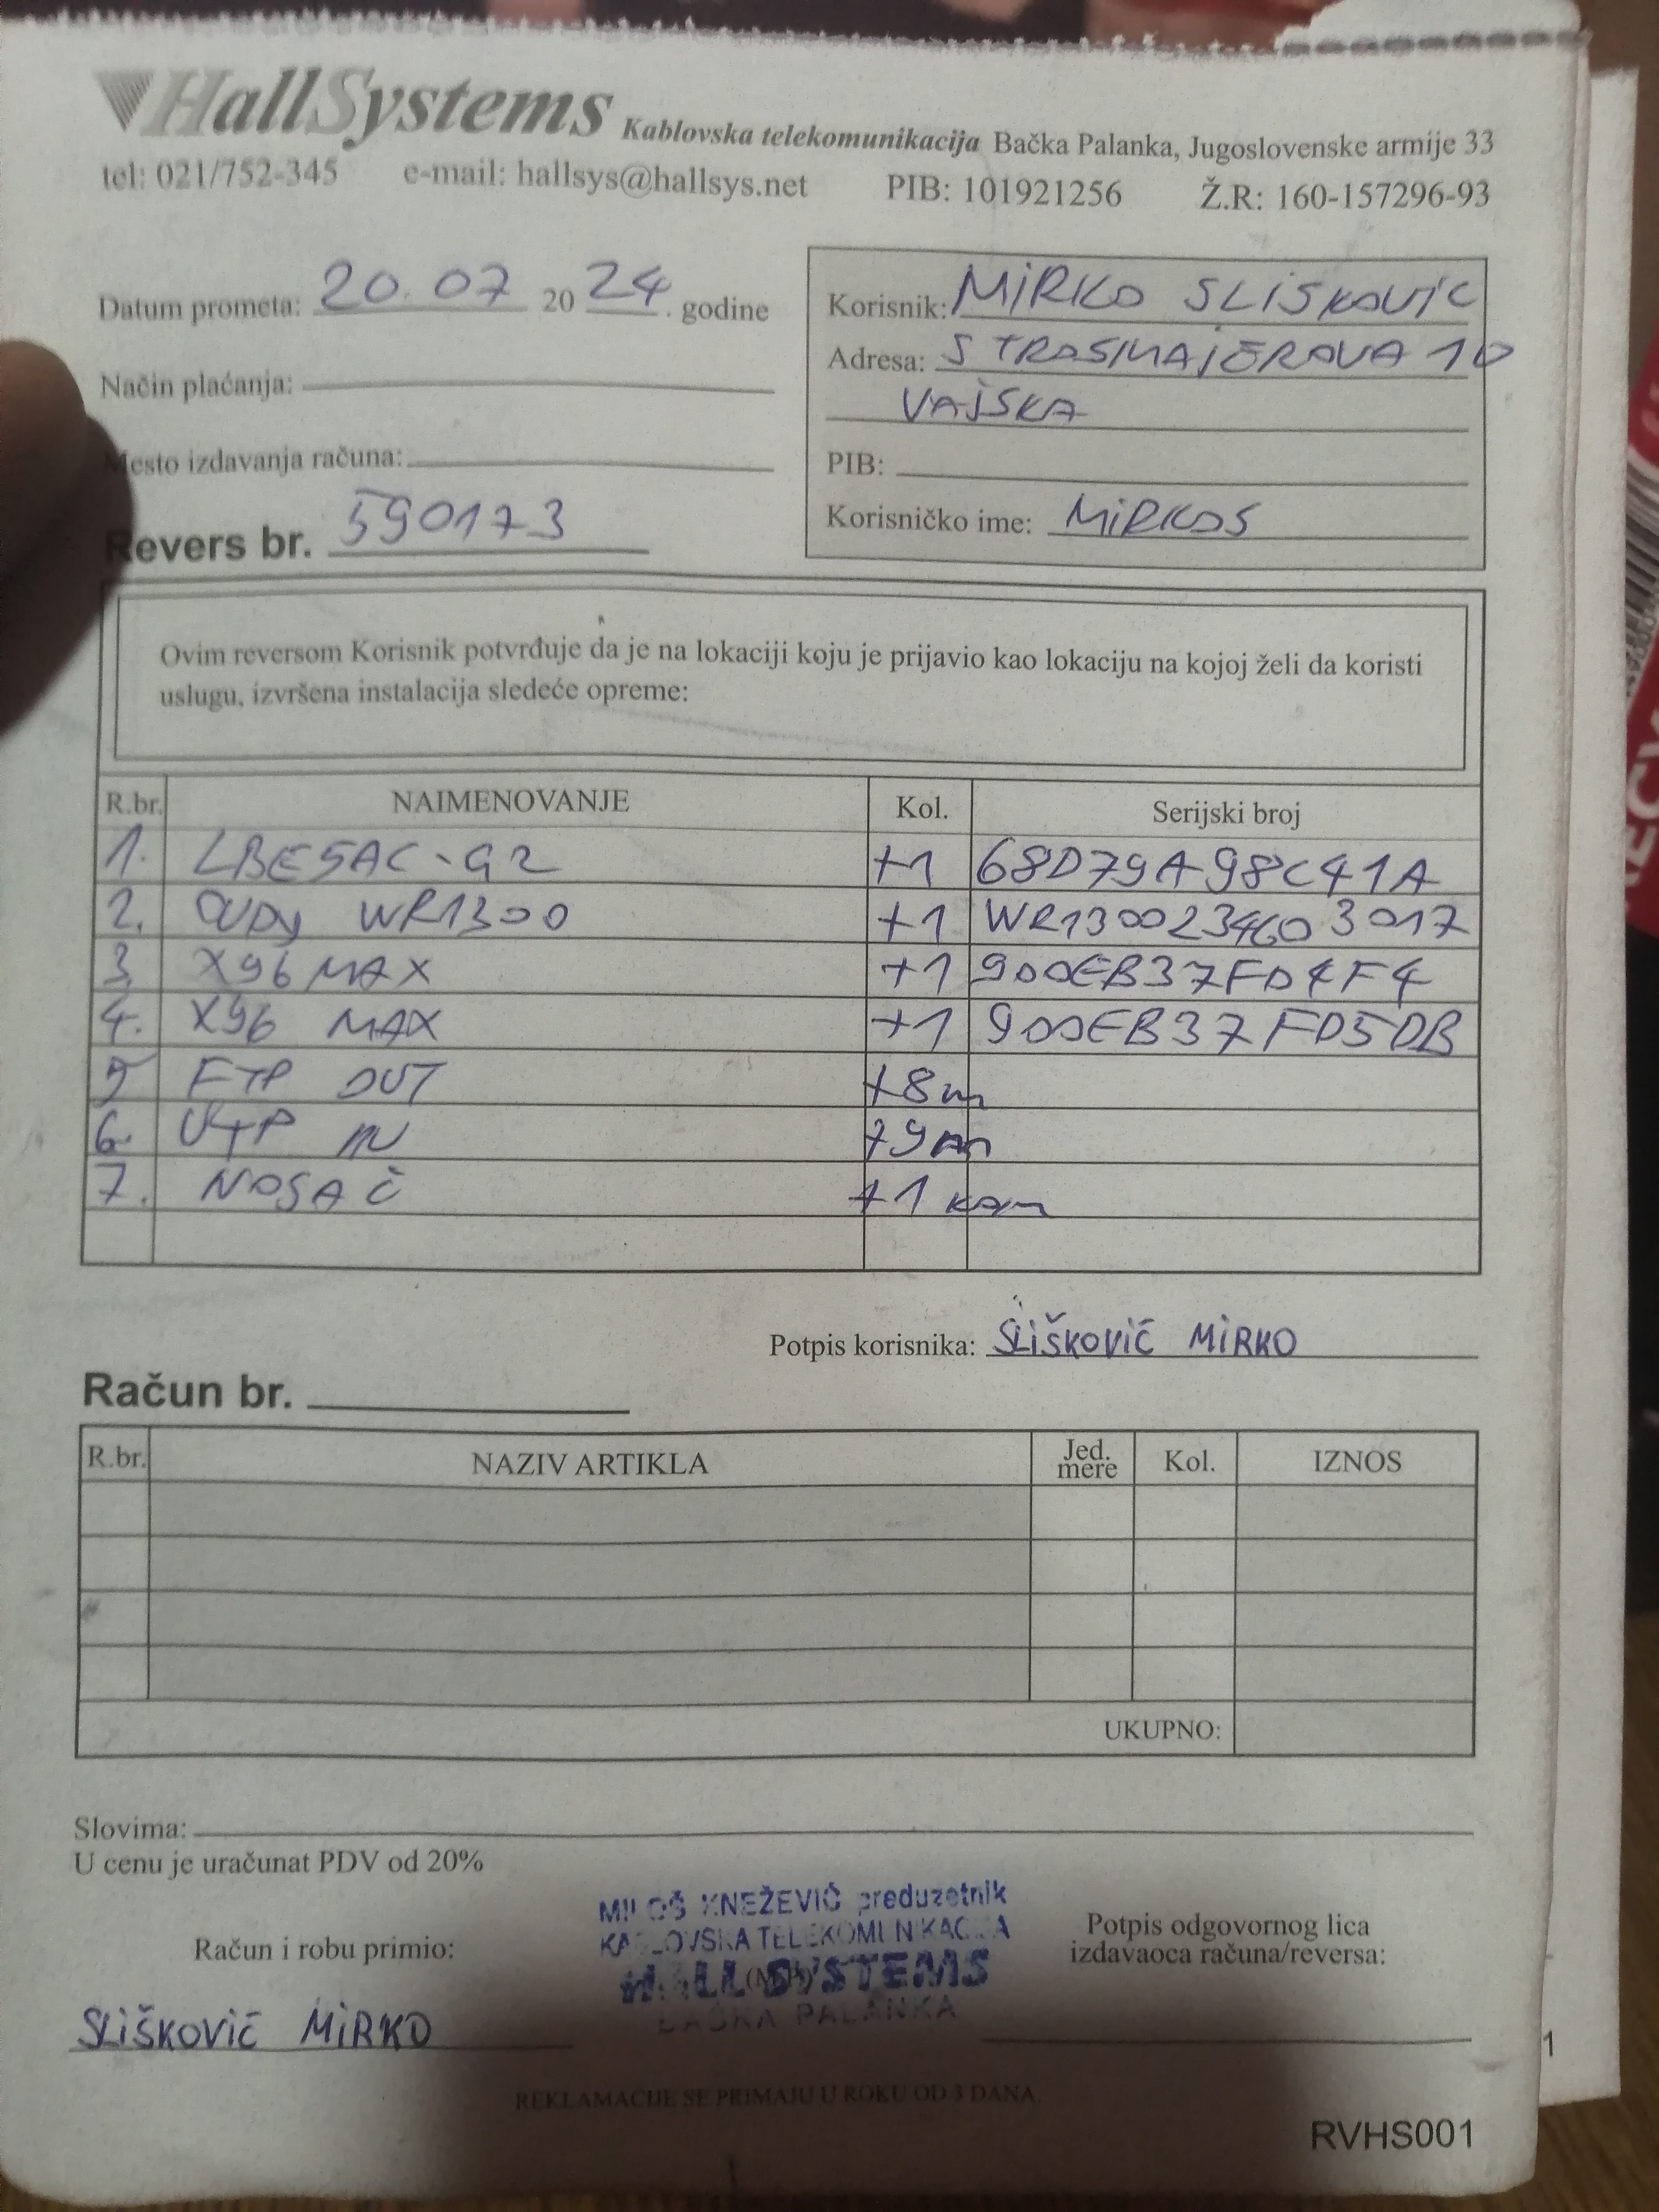 HallSystems Kablovska telekomunikacija Bačka Palanka, Jugoslovenske armije 33
tel: 021/752-345 e-mail: hallsys@hallsys.net PIB: 101921256 Ž.R: 160-157296-93
Datum prometa: 20.07 20 24. godine
Način plaćanja:
Mesto izdavanja računa:
Revers br. 590173
Korisnik: MIRKO SLISKOVIC
Adresa: STROSMAJEROVA 10
VAJSKA
PIB:
Korisničko ime: MIRKOS
Ovim reversom Korisnik potvrđuje da je na lokaciji koju je prijavio kao lokaciju na kojoj želi da koristi
uslugu, izvršena instalacija sledeće opreme:
R.br. NAIMENOVANJE Kol. Serijski broj
1. LBE5AC-G2 +1 68D79A98C41A
2. CUDY WR1300 +1 WR1300234603017
3. X96 MAX +1 900EB37FD4F4
4. X96 MAX +1 900EB37FD5DB
5 FTP OUT +8m
6. UTP IN +9m
7. NOSAČ +1 kom
Potpis korisnika: SLIŠKOVIĆ MIRKO
Račun br.
R.br. NAZIV ARTIKLA Jed. mere Kol. IZNOS
UKUPNO:
Slovima:
U cenu je uračunat PDV od 20%
MILOŠ KNEŽEVIĆ preduzetnik
KABLOVSKA TELEKOMUNIKACIJA
HALL SYSTEMS
BAČKA PALANKA
Račun i robu primio:
SLIŠKOVIĆ MIRKO
Potpis odgovornog lica
izdavaoca računa/reversa:
REKLAMACIJE SE PRIMAJU U ROKU OD 3 DANA.
RVHS001
1